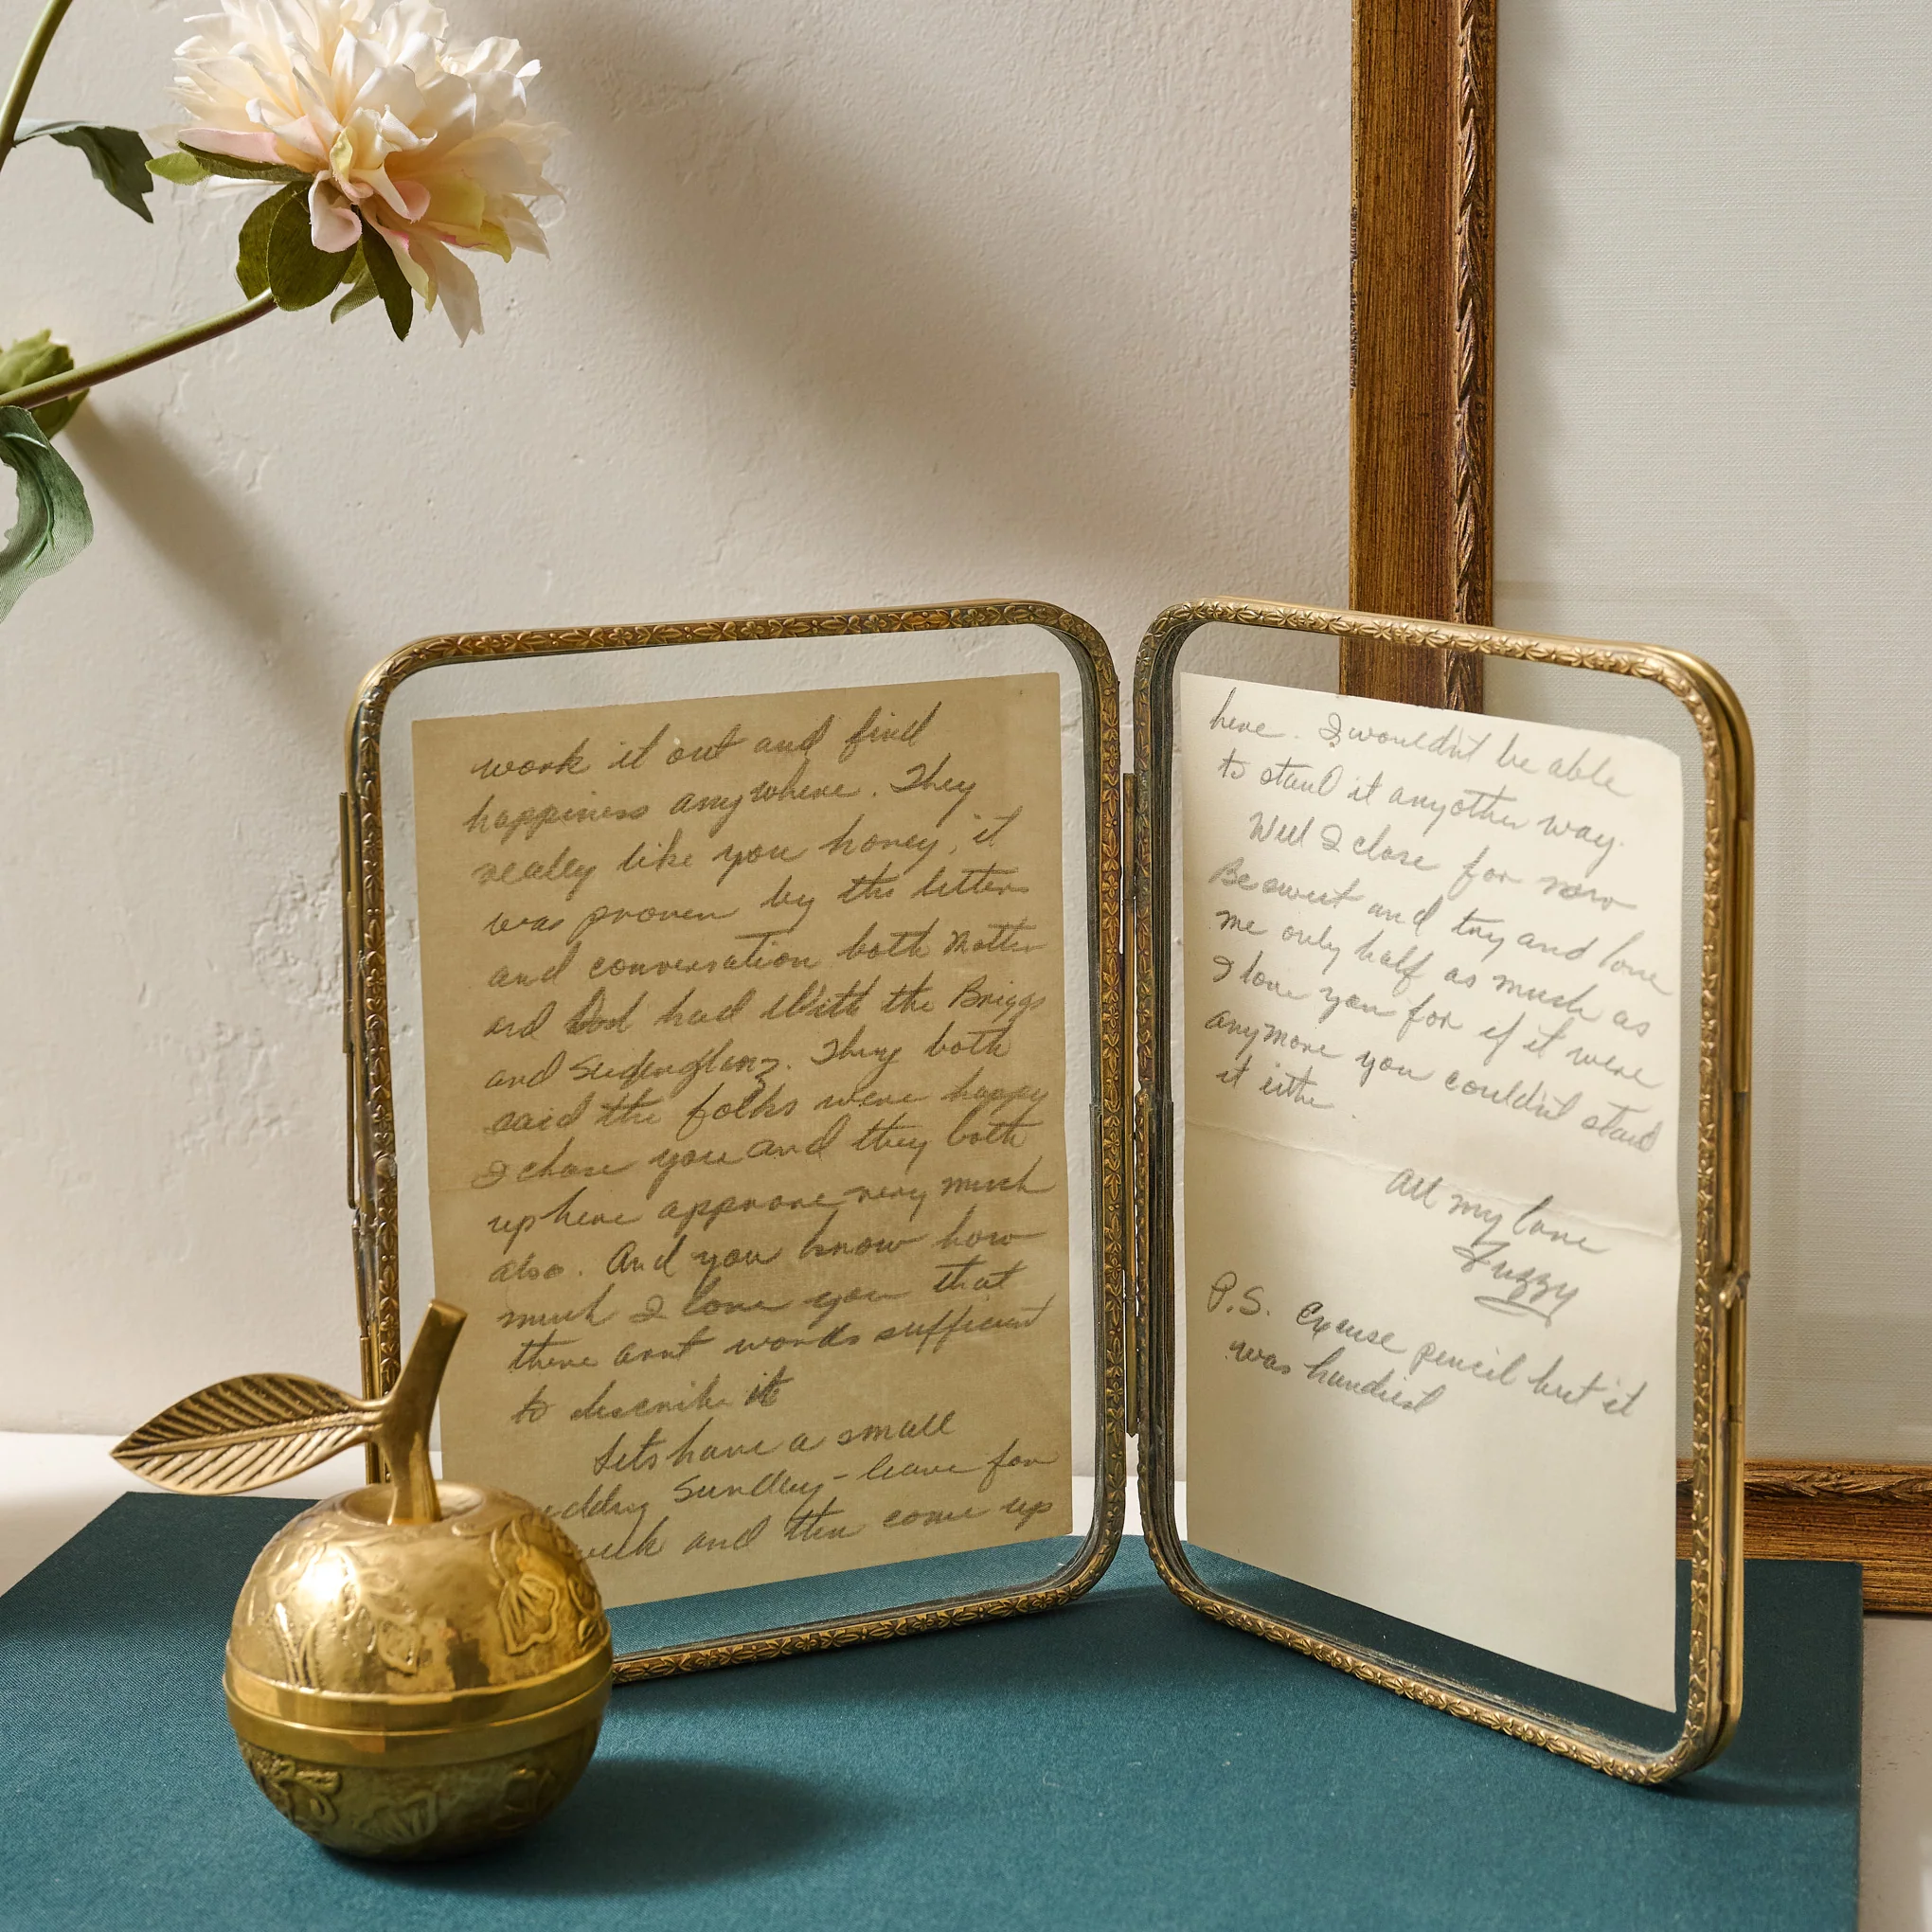 work it out and find
happiness anywhere. They
really like you honey, it
was proven by the letters
and conversation both Mother
and Dad had With the Briggs
and They both
said the folks were happy
I chose you and they both
up here approve very much
also. And you know how
much I love you that
there arnt words sufficient
to describe it
Lets have a small
Sunday - leave for
week and then come up
here. I wouldn't be able
to stand it anyother way.
Well I close for now
Be sweet and try and love
me only half as much as
I love you for if it were
anymore you couldn't stand
it either.
All my love
Fuzzy
P.S. Excuse pencil but it
was handiest